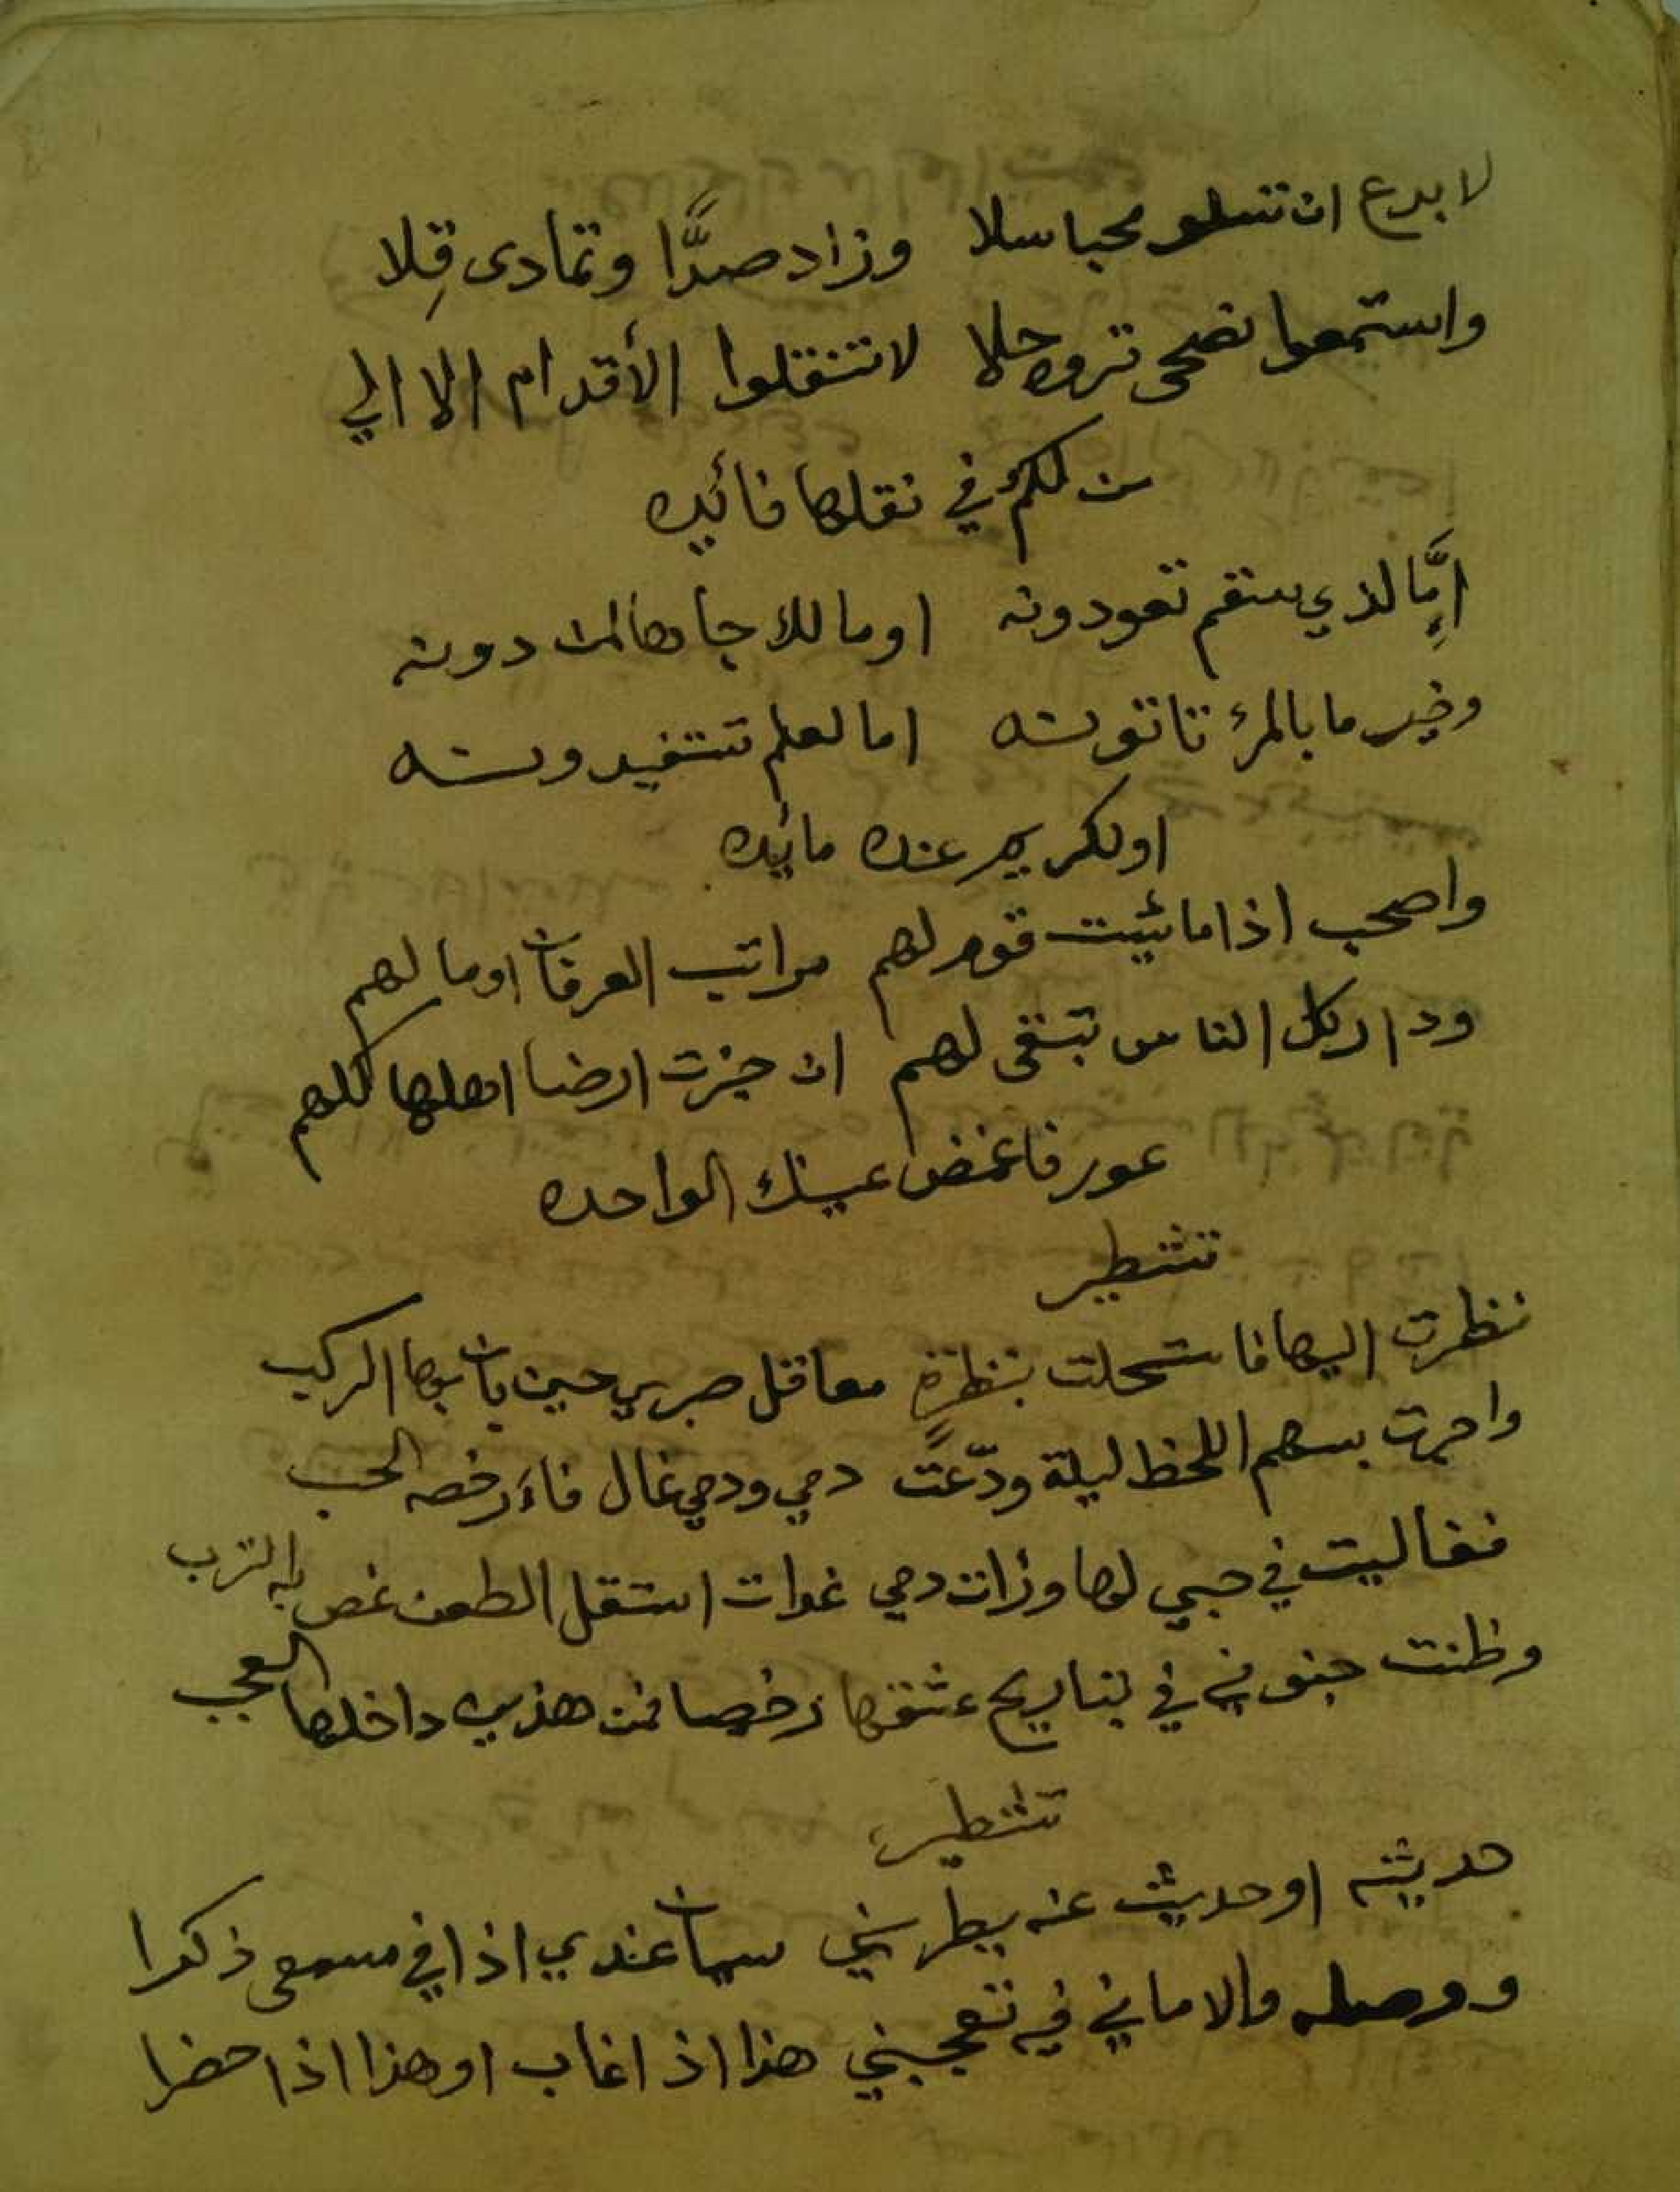 لا بدع ان تسلو محبا سلا وزاد صدًّا وتمادى قِلا
واستمعوا نصحى تروه حلا لا تنقلوا الأقدام الا الي
من لكم في نقلها فائيده
اِمَّا لذي سقم تعودونه او مالك جاها لمن دونه
وخير ما بالمرئ تاتونه اما لعلم تستفيدونه
او لكريم عنده مائيده
واصحب اذا ما شئيت قوم لهم مراتب العرفان او مالهم
ودار كل الناس تبقى لهم ان جزت ارضا اهلها كلهم
عور فاغمض عينك الواحده
تشطير
نظرت اليها فاستحلت بنظرةٍ معاقل صبري حين بان بها الركب
واجرت بسهم اللحظ ليلة ودّعت دمي ودمي غال فأرخصه الحب
فغاليت في حبي لها وزات دمي غوات استقل الطعن غص به الترب
وظنت جنوني في تباريح عشقها رخصا فمن هذين داخلها العجب
تشطير
حديثه او حديث عنه يطربني سيان عندي اذا في مسمعى ذكرا
ووصله والاماني فيه تعجبني هذا اذا غاب او هذا اذا حضرا